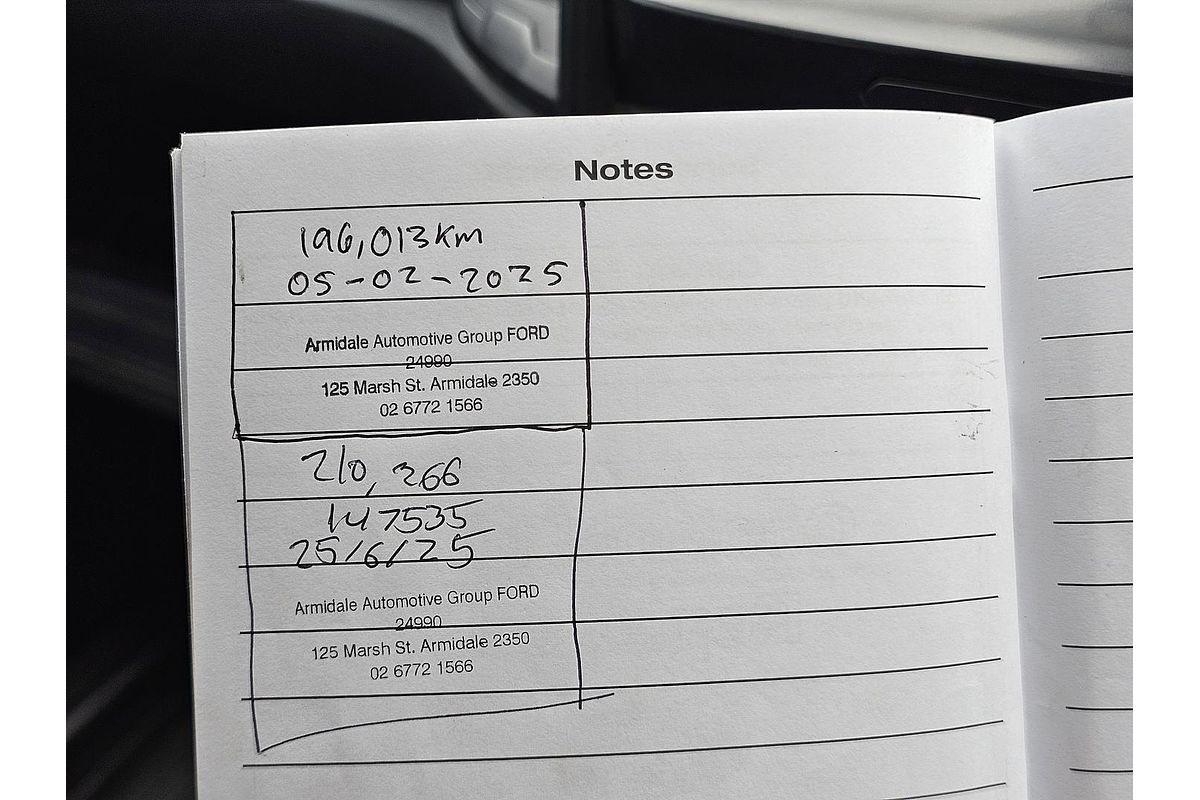 Notes
196,013km
05-02-2025
Armidale Automotive Group FORD
24990
125 Marsh St. Armidale 2350
02 6772 1566
210,366
147535
25/6/25
Armidale Automotive Group FORD
24990
125 Marsh St. Armidale 2350
02 6772 1566